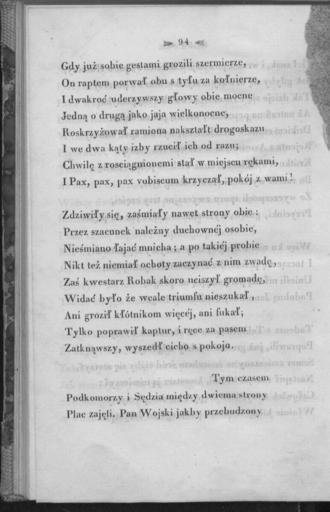 94
Gdy już sobie gestami grozili szermierze,
On raptem porwał obu s tyłu za kołnierze,
I dwakroć uderzywszy głowy obie mocne
Jedną o drugą jako jaja wielkonocne,
Roskrzyżował ramiona nakształt drogoskazu
I we dwa kąty izby rzucił ich od razu;
Chwilę z rosciągnionemi stał w miejscu rękami,
I Pax, pax, pax vobiscum krzyczał, pokój z wami!
Zdziwiły się, zaśmiały nawet strony obie:
Przez szacunek należny duchownéj osobie,
Nieśmiano łajać mnicha; a po takiéj probie
Nikt też niemiał ochoty zaczynać z nim zwadę,
Zaś kwestarz Robak skoro uciszył gromadę,
Widać było że wcale triumfu nieszukał,
Ani groził kłótnikom więcéj, ani fukał;
Tylko poprawił kaptur, i ręce za pasem
Zatknąwszy, wyszedł cicho s pokoju.
Tym czasem
Podkomorzy i Sędzia między dwiema strony
Plac zajęli. Pan Wojski jakby przebudzony